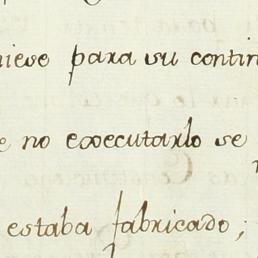 niese para su contin
e no executarlo se
estaba fabricado;